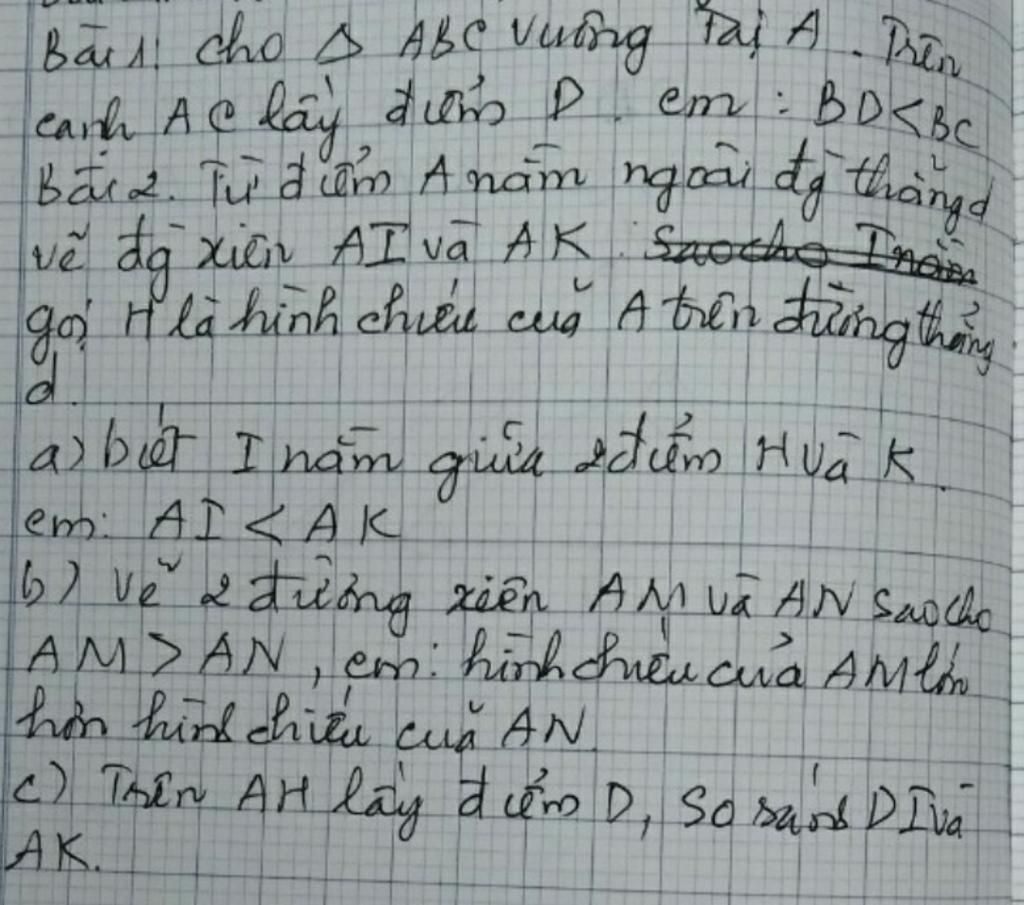 Bài 1: Cho Δ ABC vuông tại A. Trên
cạnh AC lấy điểm D. cm: BD<BC
Bài 2. Từ điểm A nằm ngoài đg thẳng d
vẽ đg xiên AI và AK. Sao cho I nằm
gọi H là hình chiếu của A trên đường thẳng
d.
a) biết I nằm giữa 2 điểm H và K.
cm: AI < AK
b) Vẽ 2 đường xiên AM và AN sao cho
AM > AN, cm: hình chiếu của AM lớn
hơn hình chiếu của AN.
c) Trên AH lấy điểm D, So sánh DI và
AK.